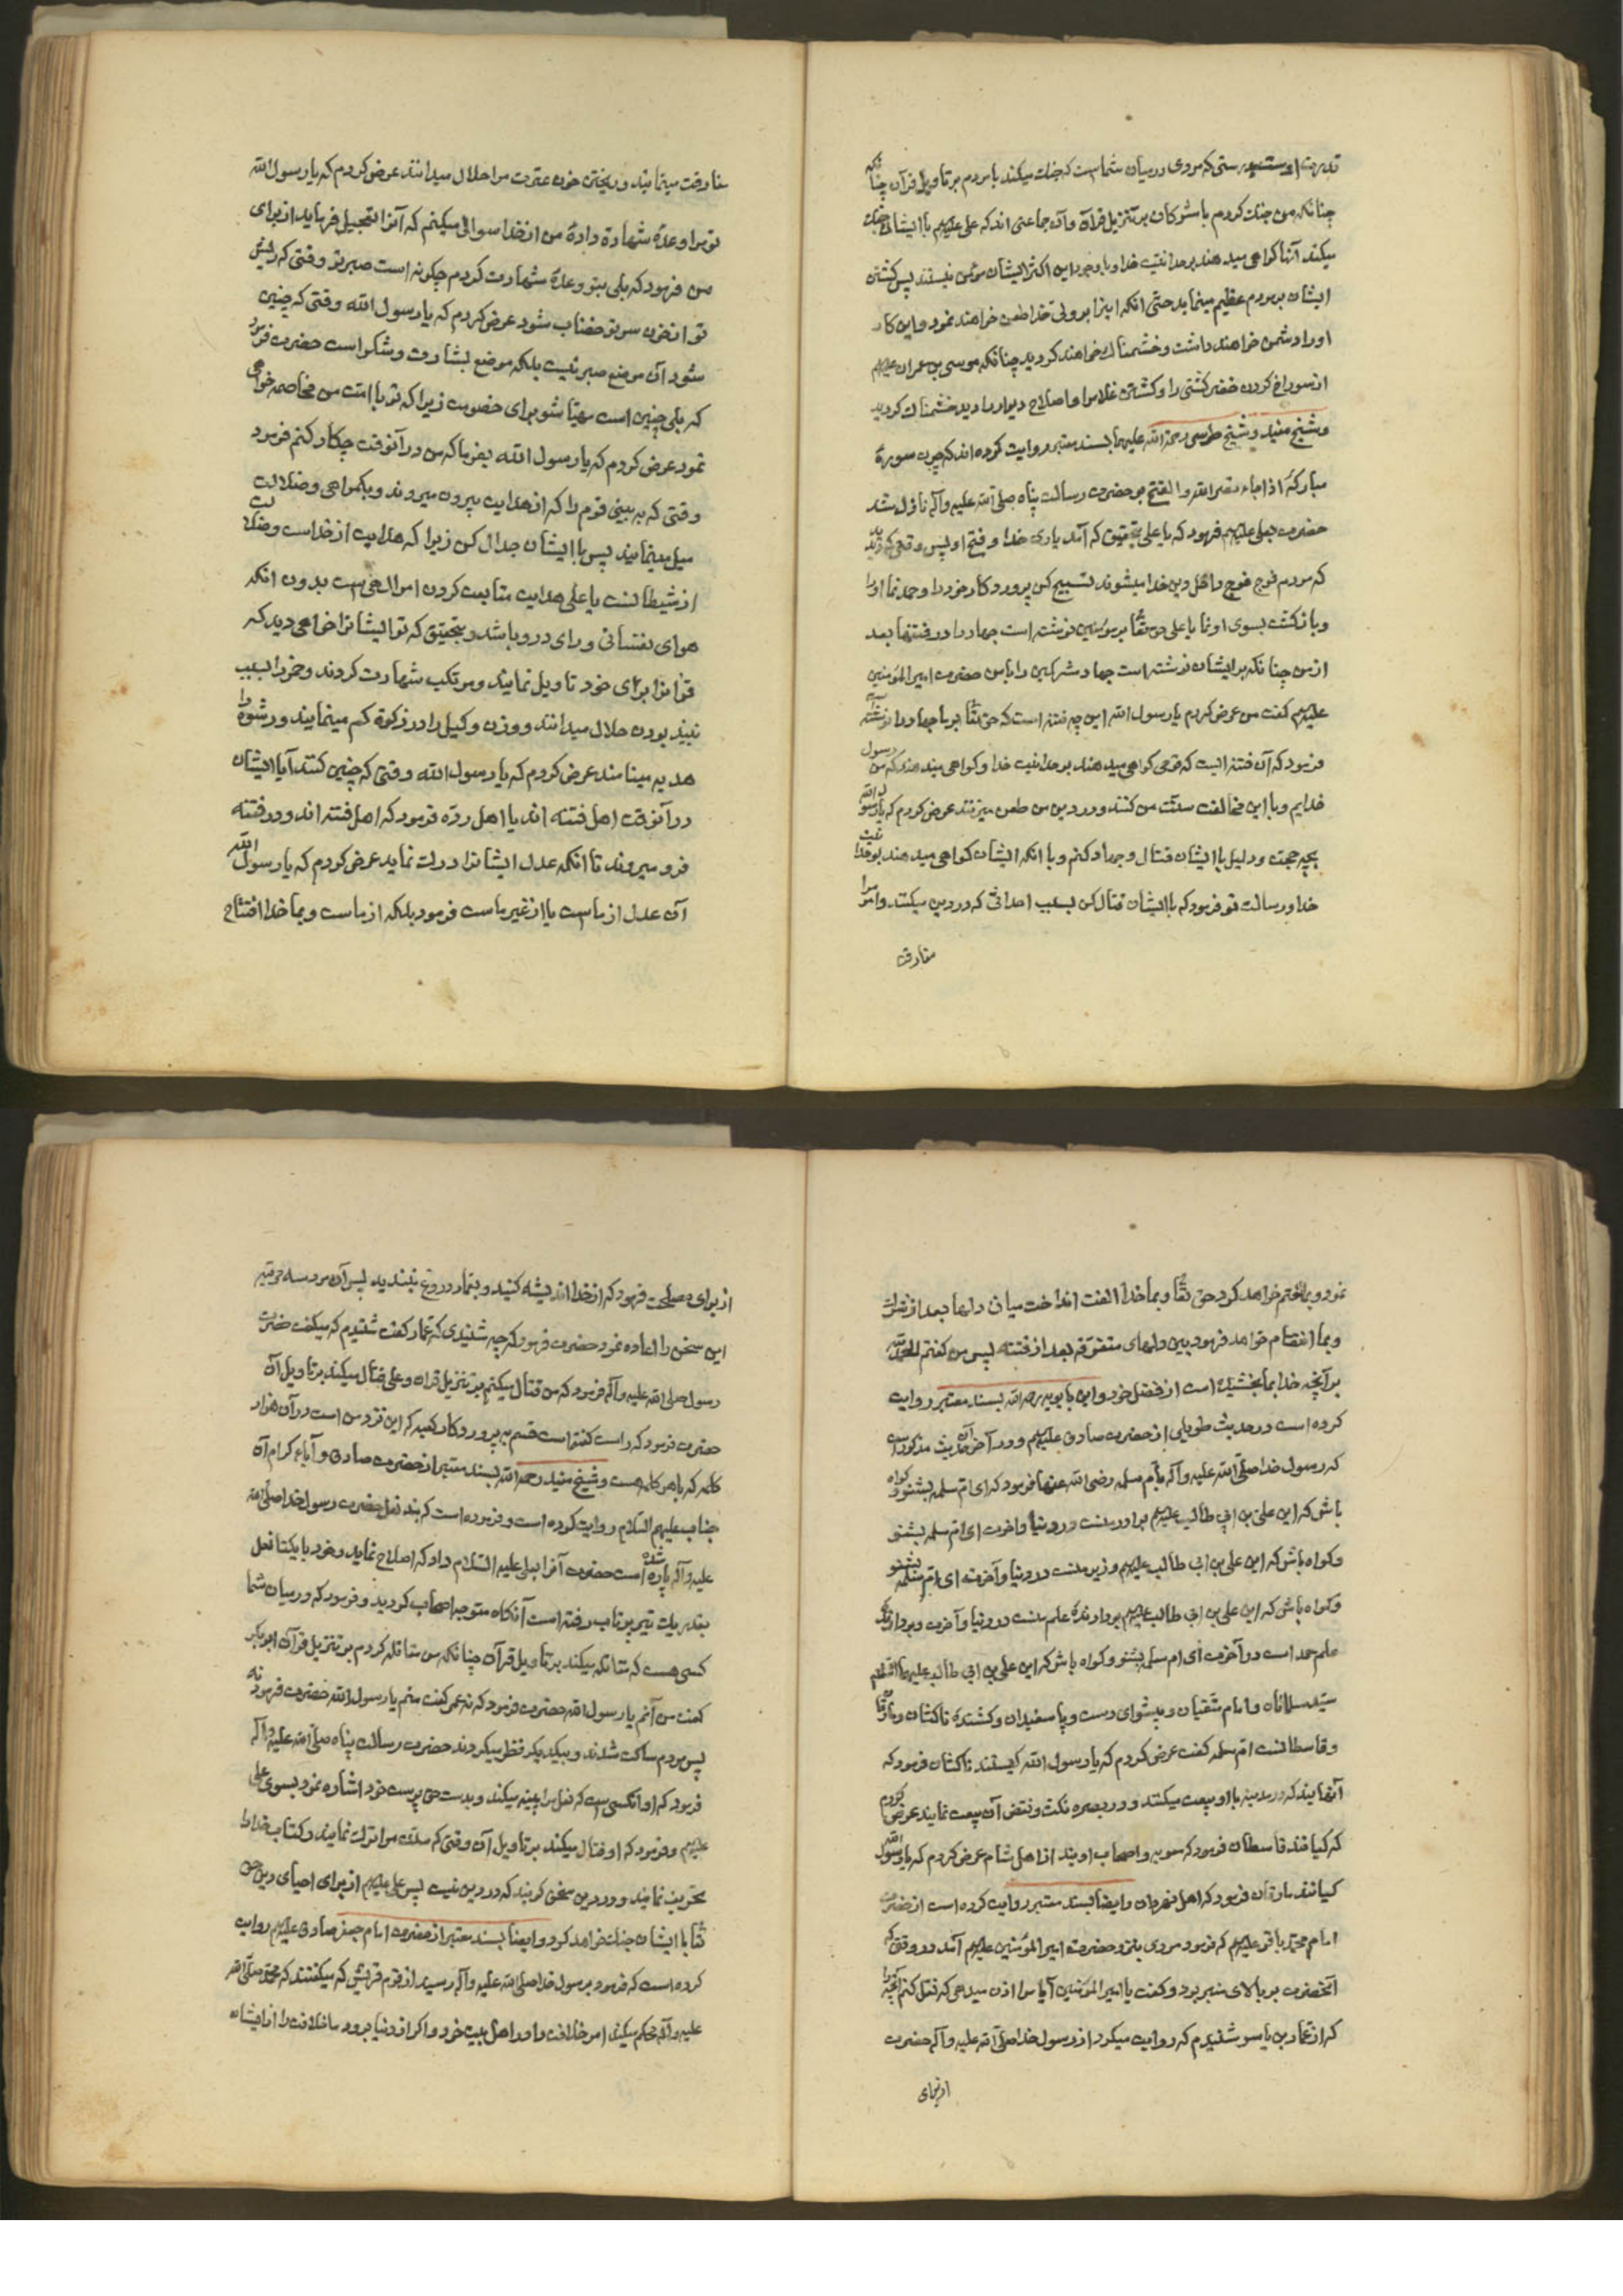 قدرت اوست بدرستی که مردی در میان شماست که جنک میکند با مردم بر تاویل قرآن چنانکه
چنانکه من جنک کردم با مشرکان بر تنزیل قرآن و آن جماعتی اند که علی علیهم با ایشان جنک
میکند آنها کواهی میدهند بوحدانیت خدا و با وجود این اکثر ایشان مؤمن نیستند پس کشتن
ایشان بر مردم عظیم مینماید حتی آنکه اینرا بر ولی خدا طعن خواهند نمود و این کار
او را دشمن خواهند داشت و خشمناک خواهند کردید چنانکه موسی بن عمران علیهم
از سوراخ کردن خضر کشتی را و کشتن غلام را و اصلاح دیوار را دید خشمناک کردید
و شیخ مفید و شیخ طوسی رحمة الله علیهما بسند معتبر روایت کرده اند که چون سورهٔ
مبارکهٔ اذا جاء نصر الله و الفتح بر حضرت رسالت پناه صلی الله علیه و آله نازل شد
حضرت بعلی علیهم فرمود که یا علی بتحقیق که آمد یاری خدا و فتح او پس وقتی که دیدید
که مردم فوج فوج داخل دین خدا میشوند تسبیح کن پروردکار خود را و حمد نما او را
و بازکشت بسوی او نما یا علی حق تعالی بر مؤمنین نوشته است جهاد را در فتنها بعد
از من چنانکه بر ایشان نوشته است جهاد مشرکین را با من حضرت امیر المؤمنین
علیهم کفت من عرض کردم یا رسول الله این چه فتنه است که حق تعالی بر ما جهاد را در آن نوشته
فرمود که آن فتنه ایست که قومی کواهی میدهند بوحدانیت خدا و کواهی میدهند که من رسول
خدایم و با این مخالفت سنت من کنند و در دین من طعن میزنند عرض کردم که یا رسول الله
بچه حجت و دلیل با ایشان قتال و جهاد کنم و با آنکه ایشان کواهی میدهند بوحدانیت
خدا و رسالت تو فرمود که با ایشان قتال کن بسبب احداثی که در دین میکنند و امر مرا
مفارقت
مفارقت مینمایند و ریختن خون عترت مرا حلال میدانند عرض کردم که یا رسول الله
تو مرا وعدهٔ شهادة دادهٔ من از خدا سوالی میکنم که آنرا تعجیل فرماید از برای
من فرمود که بلی بتو وعدهٔ شهادت کردم چکونه است صبر تو وقتی که ریش
تو از خون سر تو خضاب شود عرض کردم که یا رسول الله وقتی که چنین
شود آن موضع صبر نیست بلکه موضع بشارت و شکر است حضرت فرمود
که بلی چنین است مهیا شو برای خصومت زیرا که تو با امت من مخاصمه خواهی
نمود عرض کردم که یا رسول الله بفرما که من در آنوقت چکار کنم فرمود
وقتی که به بینی قوم را که از هدایت بیرون میروند و بکمراهی و ضلالت
میل مینمایند پس با ایشان جدال کن زیرا که هدایت از خداست و ضلالت
از شیطانست یا علی هدایت متابعت کردن امر الهی است بدون آنکه
هوای نفسانی و رای در و باشد و بتحقیق که تو ایشانرا خواهی دید که
قرآنرا برای خود تاویل نمایند و مرتکب شهادت کردند و خمر را بسبب
نبیذ بودن حلال میدانند و وزن و کیل را در زکوة کم مینمایند و رشوه را
هدیه مینامند عرض کردم که یا رسول الله وقتی که چنین کنند آیا ایشان
در آنوقت اهل فتنه اند یا اهل ردّه فرمود که اهل فتنه اند و در فتنه
فرو میروند تا آنکه عدل ایشانرا درک نماید عرض کردم که یا رسول الله
آن عدل از ماست یا از غیر ماست فرمود بلکه از ماست و بما خدا افتتاح
نمود و بما ختم خواهد کرد حق تعالی و بما خدا الفت انداخت میان دلها بعد از شرک
و بما انضمام خواهد فرمود بین دلهای متفرقه بعد از فتنه پس من کفتم الحمد لله
بر آنچه خدا بما بخشیده است از فضل خود و ابن بابویه رحمه الله بسند معتبر روایت
کرده است در حدیث طویلی از حضرت صادق علیهم و در آخر آن حدیث مذکور است
که رسول خدا صلی الله علیه و آله بأم سلمه رضی الله عنها فرمود که ای ام سلمه بشنو و کواه
باش که این علی بن ابی طالب علیهم برادر منست در دنیا و آخرت ای ام سلمه بشنو
و کواه باش که این علی بن ابی طالب علیهم وزیر منست در دنیا و آخرت ای ام سلمه بشنو
و کواه باش که این علی بن ابی طالب علیهم بردارندهٔ علم منست در دنیا و آخرت و بردارندهٔ
علم حمد است در آخرت ای ام سلمه بشنو و کواه باش که این علی بن ابی طالب علیهما السلام
سید مسلمانان و امام متقیان و پیشوای دست و پا سفیدان و کشندهٔ ناکثان و مارقان
و قاسطانست ام سلمه کفت عرض کردم که یا رسول الله کیستند ناکثان فرمود که
آنهایند که در مدینه با او بیعت میکنند و در بصره نکث و نقض آن بیعت نمایند عرض کردم
که کیانند قاسطان فرمود که معویه و اصحاب اویند از اهل شام عرض کردم که یا رسول الله
کیانند مارقان فرمود که اهل نهروان و ایضا بسند معتبر روایت کرده است از حضرت
امام محمد باقر علیهم که فرمود مردی بنزد حضرت امیر المؤمنین علیهم آمد در وقتی که
آنحضرت بر بالای منبر بود و کفت یا امیر المؤمنین آیا مرا اذن میدهی که نقل کنم آنچه را
که از عمار بن یاسر شنیدم که روایت میکرد از رسول خدا صلی الله علیه و آله حضرت
از برای
از برای مصلحت فرمود که از خدا اندیشه کنید و بعمار دروغ نبندید پس آن مرد سه مرتبه
این سخن را اعاده نمود حضرت فرمود که چه شنیدی که عمار کفت شنیدم که میکفت حضرت
رسول صلی الله علیه و آله فرمود که من قتال میکنم بر تنزیل قرآن و علی قتال میکند بر تاویل آن
حضرت فرمود که راست کفته است قسم به پروردکار کعبه که این نزد من است در آن هزار
کلمه که با هر کلمه هست و شیخ مفید رحمه الله بسند معتبر از حضرت صادق و آباء کرام آن
جناب علیهم السلام روایت کرده است و فرموده است که بند نعل حضرت رسول خدا صلی الله
علیه و آله پاره شده است حضرت آنرا بعلی علیه السلام داد که اصلاح نماید و خود با یکتا نعل
بقدر یک تیر پرتاب رفته است آنکاه متوجه اصحاب کردید و فرمود که در میان شما
کسی هست که مقاتله میکند بر تاویل قرآن چنانکه من مقاتله کردم بر تنزیل قرآن ابو بکر
کفت من آنم یا رسول الله حضرت فرمود که نه عمر کفت منم یا رسول الله حضرت فرمود نه
پس مردم ساکت شدند و بیکدیکر نظر میکردند حضرت رسالت پناه صلی الله علیه و آله
فرمود که او آنکسی است که نعل مرا پینه میکند و بدست حق پرست خود اشاره نمود بسوی علی
علیهم و فرمود که او قتال میکند بر تاویل آن وقتی که سنت مرا ترک نمایند و کتاب خدا را
تحریف نمایند و در دین سخن کویند که در دین نیست پس علی علیهم از برای احیای دین حق
تعالی با ایشان جنک خواهد کرد و ایضا بسند معتبر از حضرت امام جعفر صادق علیهم روایت
کرده است که فرمود برسول خدا صلی الله علیه و آله رسید از قوم قریش که میکفتند که محمد صلی الله
علیه و آله محکم میکند امر خلافت را در اهل بیت خود و اکر از دنیا برود ما خلافت را از ایشان